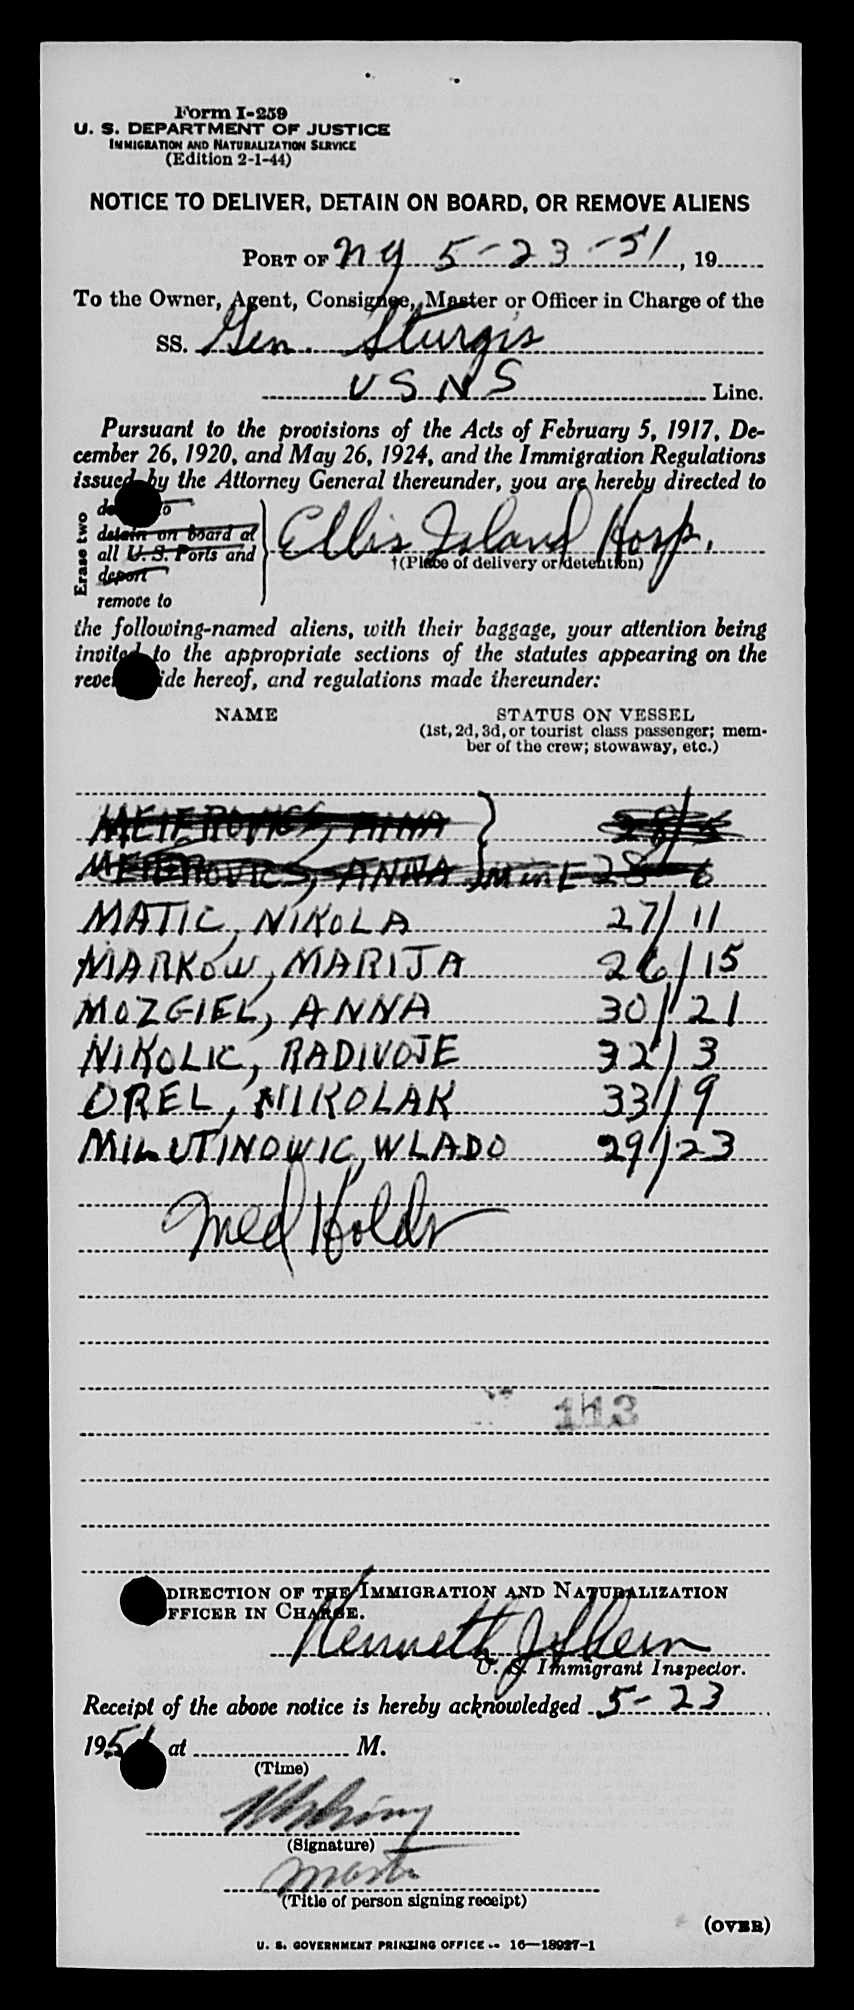 Form I-259
U. S. DEPARTMENT OF JUSTICE
IMMIGRATION AND NATURALIZATION SERVICE
(Edition 2-1-44)
NOTICE TO DELIVER, DETAIN ON BOARD, OR REMOVE ALIENS
PORT OF NY 5-23-51, 19
To the Owner, Agent, Consignee, Master or Officer in Charge of the
SS. Gen. Sturgis
USNS Line.
Pursuant to the provisions of the Acts of February 5, 1917, De-
cember 26, 1920, and May 26, 1924, and the Immigration Regulations
issued by the Attorney General thereunder, you are hereby directed to
Erase two
to
detain on board at
all U. S. Ports and
deport
remove to
Ellis Island Hosp.
†(Place of delivery or detention)
the following-named aliens, with their baggage, your attention being
invited to the appropriate sections of the statutes appearing on the
reverse side hereof, and regulations made thereunder:
NAME STATUS ON VESSEL
(1st, 2d, 3d, or tourist class passenger; mem-
ber of the crew; stowaway, etc.)
MEIEROVICS, ANNA 28/5
MEIEROVICS, ANNA 28 6
MATIC, NIKOLA 27/11
MARKOW, MARIJA 26/15
MOZGIEL, ANNA 30/21
NIKOLIC, RADIVOJE 32/3
OREL, NIKOLAK 33/9
MILUTINOWIC, WLADO 29/23
Med Holds
113
DIRECTION OF THE IMMIGRATION AND NATURALIZATION
OFFICER IN CHARGE.
Kenneth
U. S. Immigrant Inspector.
Receipt of the above notice is hereby acknowledged 5-23
1951 at M.
(Time)
(Signature)
Master
(Title of person signing receipt)
(OVER)
U. S. GOVERNMENT PRINTING OFFICE 16—18927-1